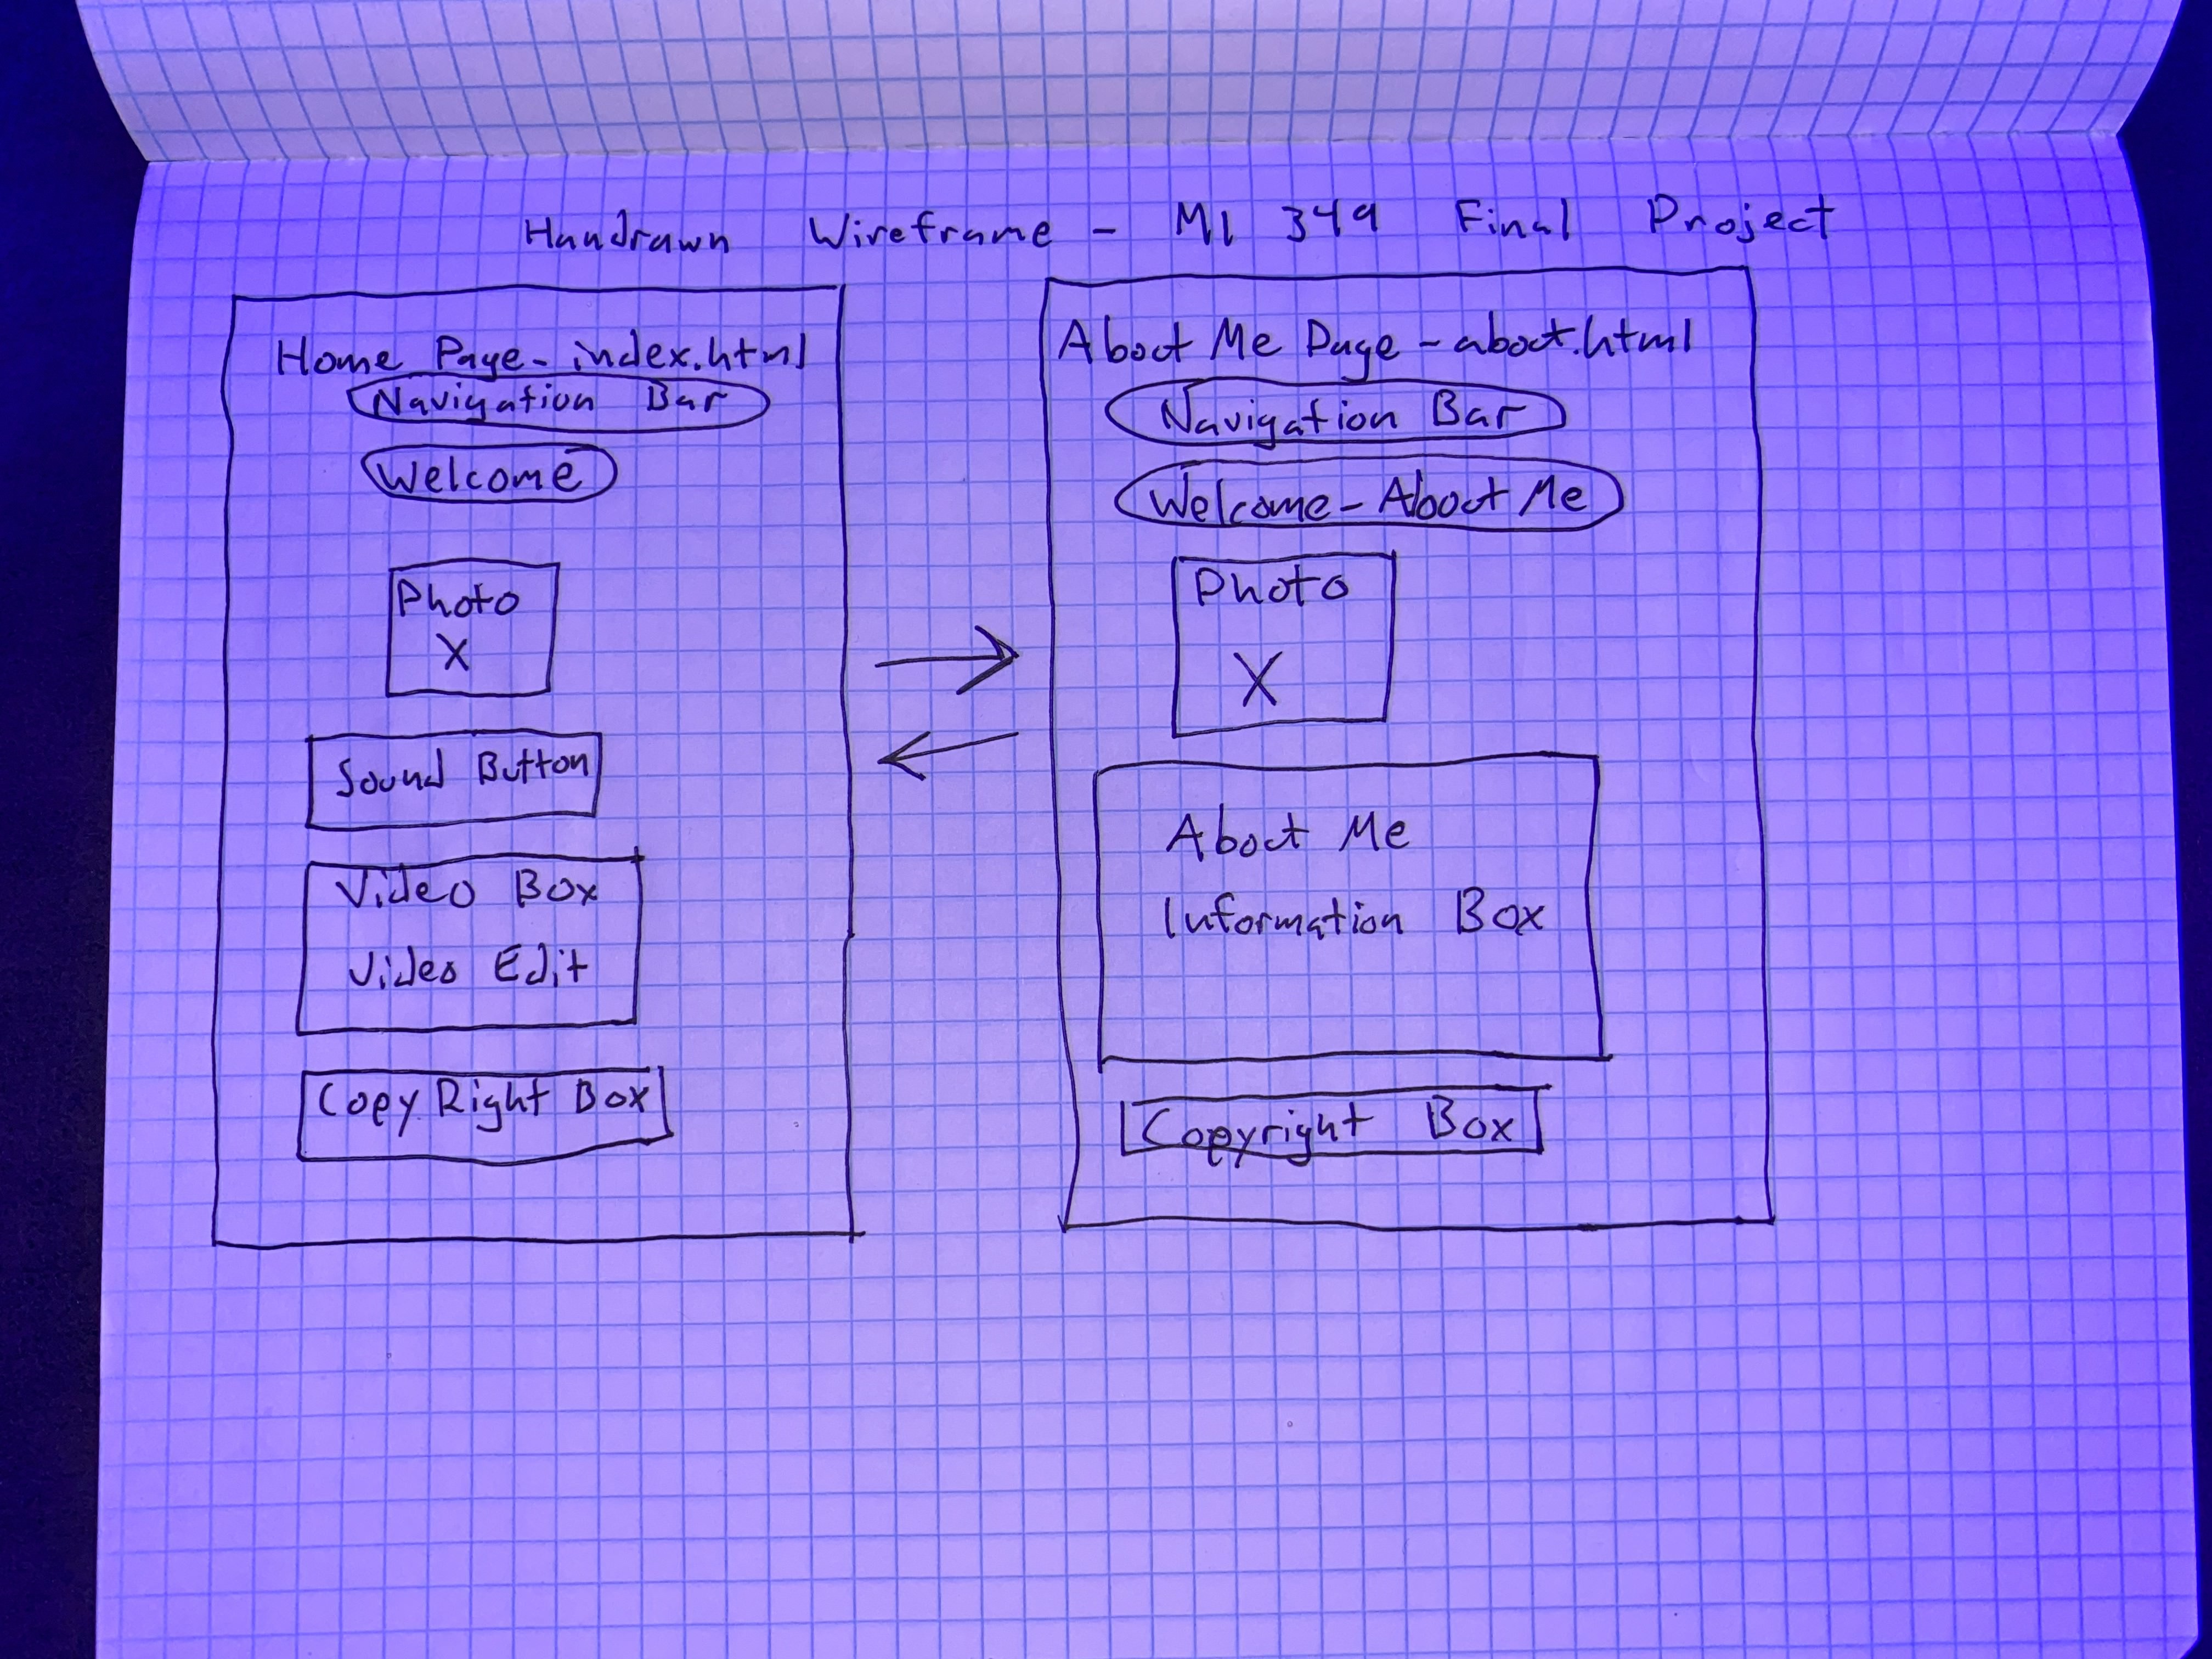 Handrawn Wireframe - MI 349 Final Project
Home Page - index.html
Navigation Bar
Welcome
Photo
X
Sound Button
Video Box
Video Edit
Copy Right Box
About Me Page - about.html
Navigation Bar
Welcome - About Me
Photo
X
About Me
Information Box
Copyright Box